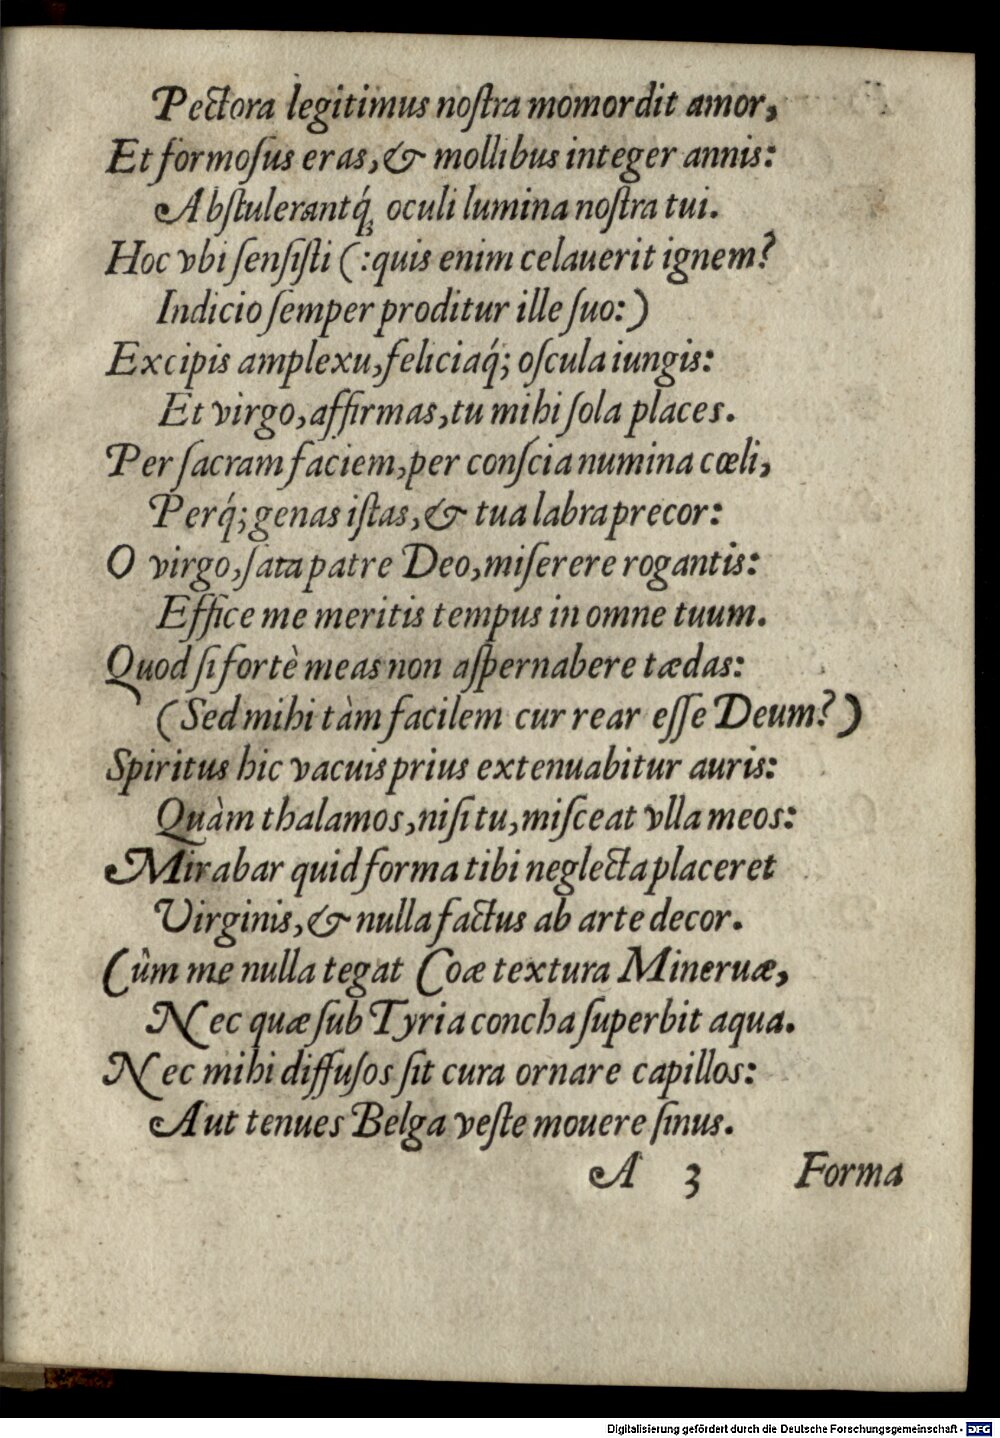 Pectora legitimus noſtra momordit amor,
Et formoſus eras, & mollibus integer annis:
Abſtulerantq́ꝫ oculi lumina noſtra tui.
Hoc vbi ſenſiſti (:quis enim celauerit ignem?
Indicio ſemper proditur ille ſuo:)
Excipis amplexu, feliciaq́; oſcula iungis:
Et virgo, affirmas, tu mihi ſola places.
Per ſacram faciem, per conſcia numina cœli,
Perq́; genas iſtas, & tua labra precor:
O virgo, ſata patre Deo, miſerere rogantis:
Effice me meritis tempus in omne tuum.
Quod ſi fortè meas non aſpernabere tædas:
(Sed mihi tàm facilem cur rear eſſe Deum?)
Spiritus hic vacuis prius extenuabitur auris:
Quàm thalamos, niſi tu, miſceat vlla meos:
Mirabar quid forma tibi neglecta placeret
Virginis, & nulla factus ab arte decor.
Cûm me nulla tegat Coæ textura Mineruæ,
Nec quæ ſub Tyria concha ſuperbit aqua.
Nec mihi diffuſos ſit cura ornare capillos:
Aut tenues Belga veſte mouere ſinus.
A 3 Forma
Digitalisierung gefördert durch die Deutsche Forschungsgemeinschaft - DFG